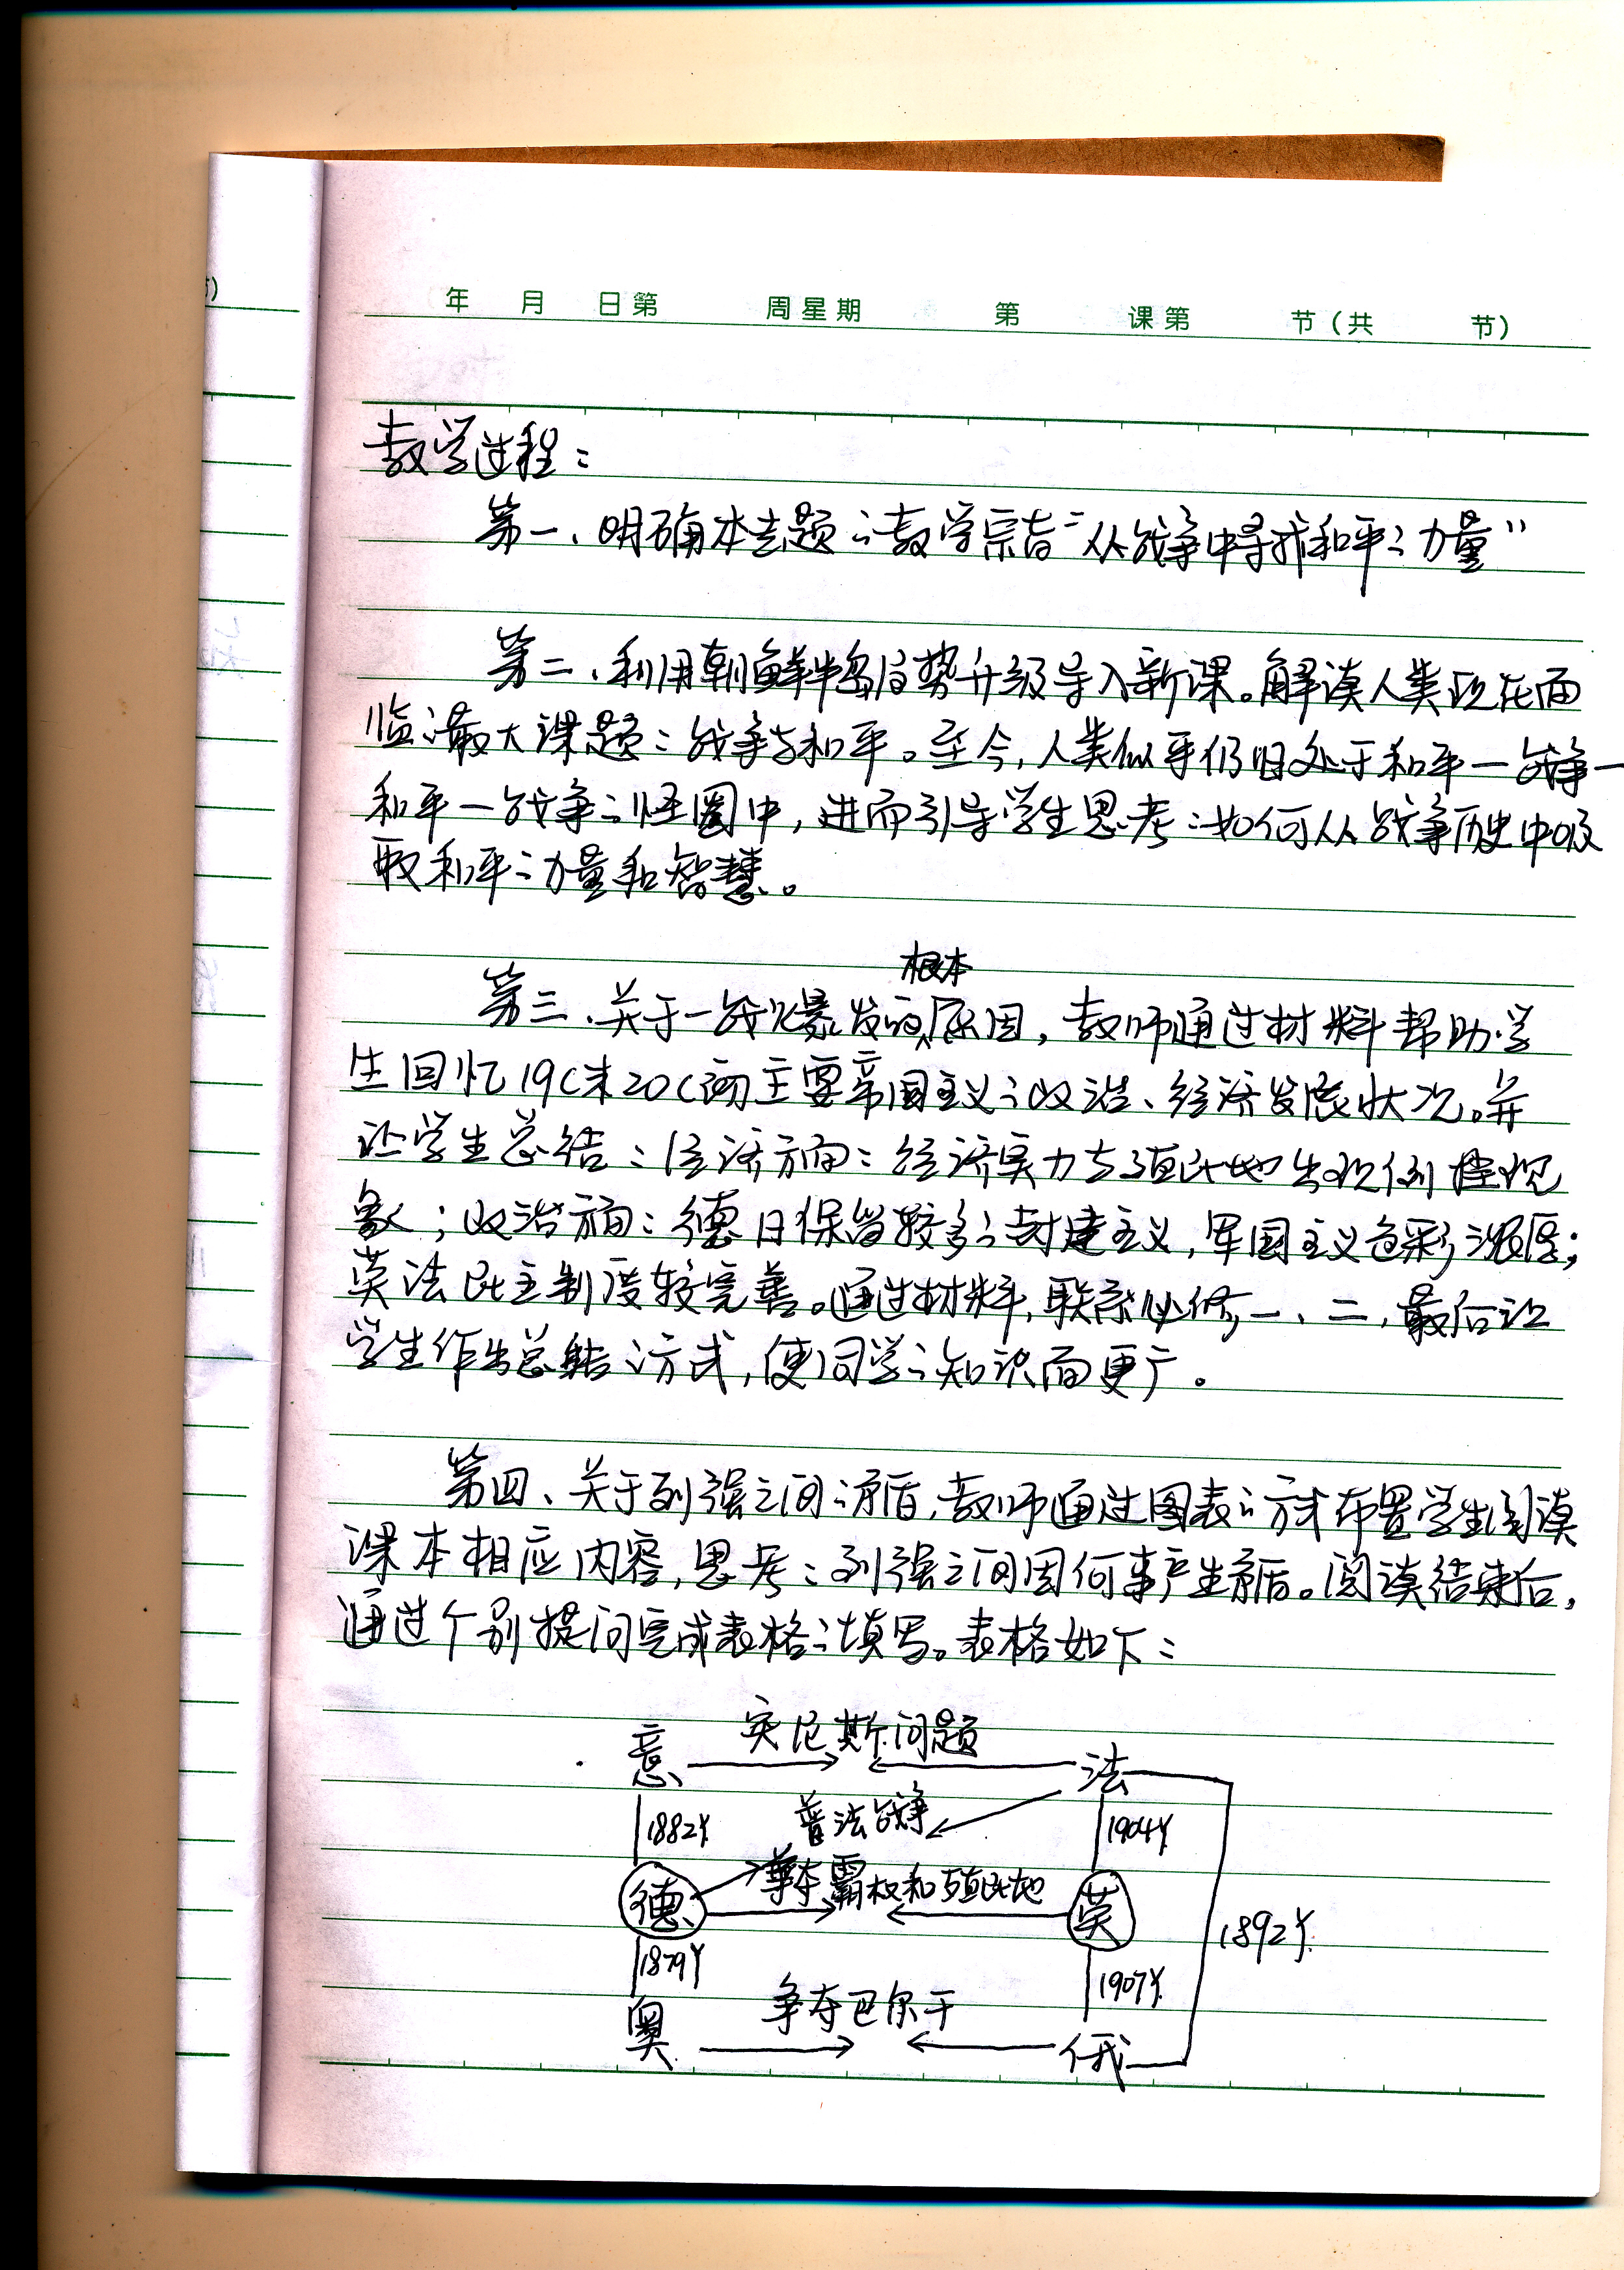 节)
年 月 日第 周星期 第 课第 节(共 节)
教学过程:
第一、明确本专题的教学宗旨“从战争中寻求和平的力量”
第二、利用朝鲜半岛局势升级导入新课。解读人类现在面
临的最大课题:战争与和平。至今,人类似乎仍旧处于和平—战争—
和平—战争的怪圈中,进而引导学生思考:如何从战争历史中吸
取和平的力量和智慧。
根本
第三、关于一战爆发的原因,教师通过材料帮助学
生回忆19C末20C初主要帝国主义的政治、经济发展状况。并
让学生总结:经济方面:经济实力与殖民地出现倒挂现
象;政治方面:德日保留较多的封建主义,军国主义色彩浓厚;
英法民主制度较完善。通过材料,联系必修一、二,最后让
学生作出总结的方式,使同学的知识面更广。
第四、关于列强之间的矛盾,教师通过图表的方式布置学生阅读
课本相应内容,思考:列强之间因何事产生矛盾。阅读结束后,
通过个别提问完成表格的填写。表格如下:
意 突尼斯问题 法
1882年 普法战争 1904年
德 争夺霸权和殖民地 英
1892年
1879年 1907年
奥 争夺巴尔干 俄